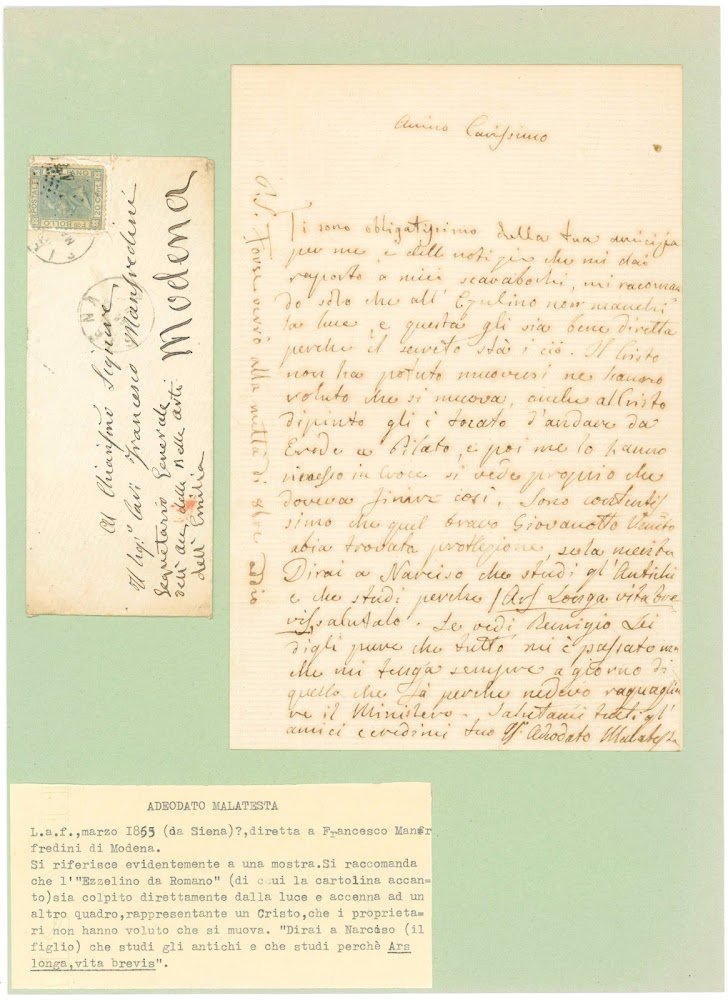 Amico Carissimo
Ti sono obligatissimo della tua amicizia
per me, e delle notizie che mi dai
raporto a miei scarabochi, mi racoman
do solo che all' Ezelino non manchi
la luce, e questa gli sia bene diretta
perche il secreto stà i ciò. Il Cristo
non ha potuto muoversi ne hanno
voluto che si mueva, anche al Cristo
dipinto gli è tocato d'andare da
Erode a Pilato, e poi me lo hanno
rimesso in Croce si vede proprio che
doveva finire così. Sono contentis
simo che quel bravo Giovanotto
abia trovata protezione, se la merita
Dirai a Narciso che studi gl' Antichi
e che studi perche Ars Longa vita bre
vis, salutalo. Se vedi Remigio Lei
digli pure che tutto mi è passato
che mi tenga sempre a giorno di
quello che fà perche devo raguaglia
re il Ministero. Salutami tutti gl'
amici e credimi tuo Adeodato Malatesta
P.S. Forse verrò alla metà di
POSTE ITALIANE
BOLLO
20
Al Chiarissmo Signore
Il Sigr Cav. Francesco Manfredini
Segretario Generale
dell' Acc. delle Belle Arti
dell' Emilia
Modena
ADEODATO MALATESTA
L.a.f.,marzo 1865 (da Siena)?,diretta a Francesco Man
fredini di Modena.
Si riferisce evidentemente a una mostra.Si raccomanda
che l'"Ezzelino da Romano" (di cui la cartolina accan=
to)sia colpito direttamente dalla luce e accenna ad un
altro quadro,rappresentante un Cristo,che i proprieta=
ri non hanno voluto che si muova. "Dirai a Narciso (il
figlio) che studi gli antichi e che studi perchè Ars
longa,vita brevis".